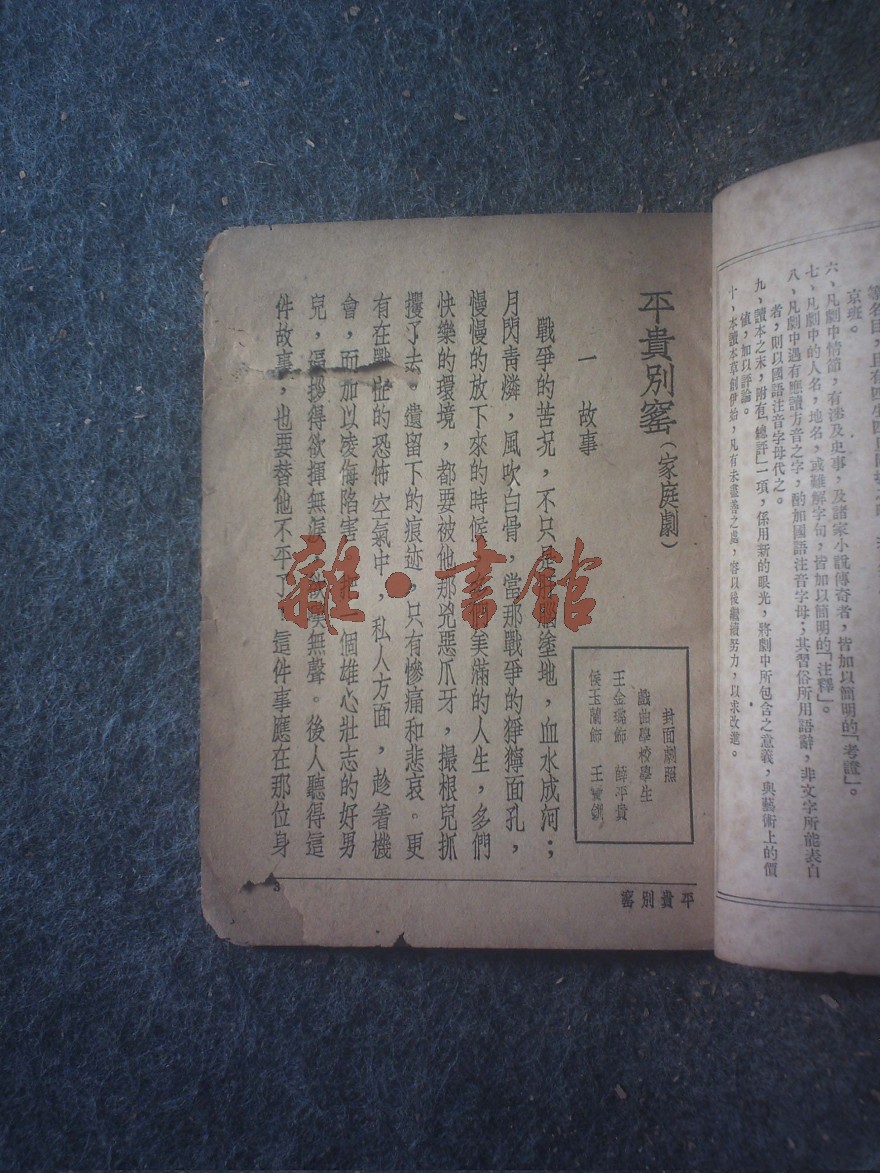 京班。
六、凡劇中情節，有涉及史事，及諸家小說傳奇者，皆加以簡明的「考證」。
七、凡劇中的人名，地名，或難解字句，皆加以簡明的「注釋」。
八、凡劇中遇有應讀方音之字，酌加國語注音字母；其習俗所用語辭，非文字所能表白
者，則以國語注音字母代之。
九、讀本之末，附有「總評」一項，係用新的眼光，將劇中所包含之意義，與藝術上的價
值，加以評論。
十、本讀本草創伊始，凡有未盡善之處，容以後繼續努力，以求改進。
平貴別窰（家庭劇）
封面劇照
戲曲學校學生
王金璐飾 薛平貴
侯玉蘭飾 王寶釧
一 故事
戰爭的苦況，不只是塗地，血水成河；
月閃青燐，風吹白骨，當那戰爭的猙獰面孔，
慢慢的放下來的時候，們美滿的人生，多們
快樂的環境，都要被他那兇惡爪牙，撮根兒抓
攫了去。遺留下的痕迹，只有慘痛和悲哀。更
有在戰的恐怖空氣中，私人方面，趁着機
會，而加以凌侮陷害，個雄心壯志的好男
兒，逼拶得欲揮無淚，欲嘆無聲。後人聽得這
件故事，也要替他不平了。這件事應在那位身
平貴別窰
3
雜·書館